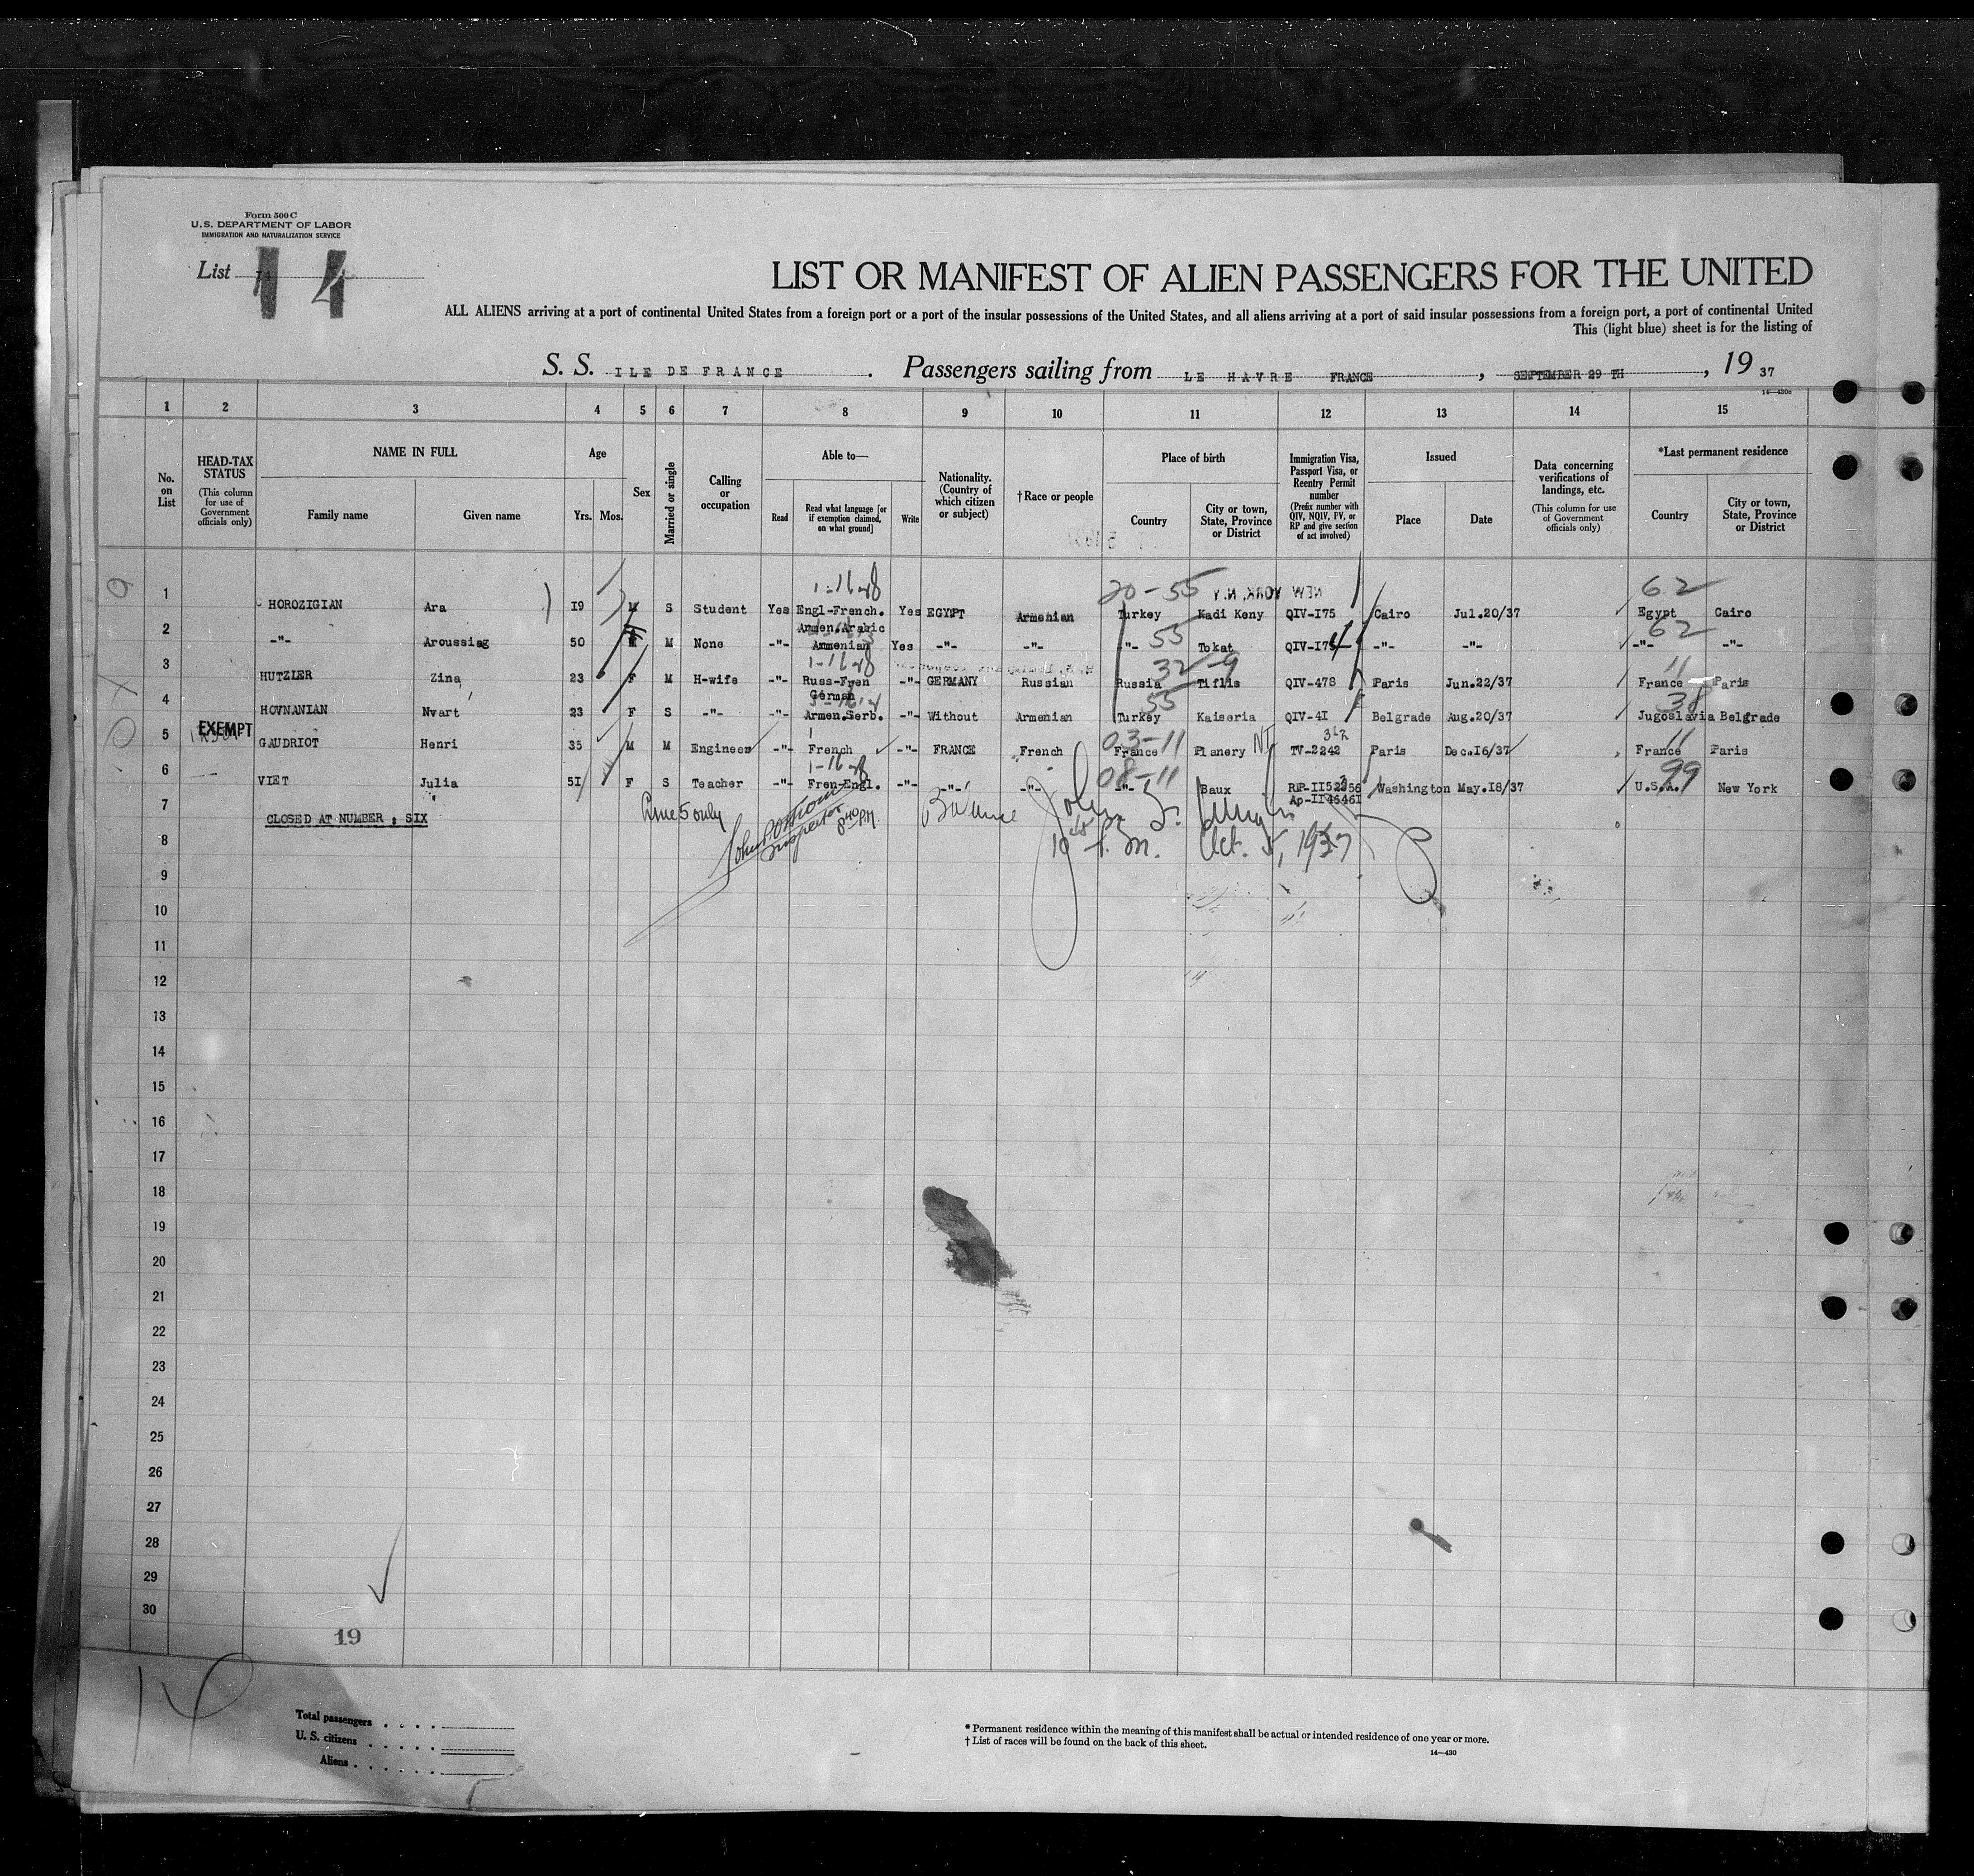 Form 500 C
U.S. DEPARTMENT OF LABOR
IMMIGRATION AND NATURALIZATION SERVICE
List 14
LIST OR MANIFEST OF ALIEN PASSENGERS FOR THE UNITED
ALL ALIENS arriving at a port of continental United States from a foreign port or a port of the insular possessions of the United States, and all aliens arriving at a port of said insular possessions from a foreign port, a port of continental United
This (light blue) sheet is for the listing of
S. S. ILE DE FRANCE . Passengers sailing from LE HAVRE FRANCE , SEPTEMBER 29 TH , 19 37
14—430c
1 2 3 4 5 6 7 8 9 10 11 12 13 14 15
No. on List
HEAD-TAX STATUS (This column for use of Government officials only)
NAME IN FULL Family name Given name
Age Yrs. Mos.
Sex
Married or single
Calling or occupation
Able to— Read Read what language [or if exemption claimed, on what ground] Write
Nationality. (Country of which citizen or subject)
†Race or people
Place of birth Country City or town, State, Province or District
Immigration Visa, Passport Visa, or Reentry Permit number (Prefix number with QIV, NQIV, FV, or RP and give section of act involved)
Issued Place Date
Data concerning verifications of landings, etc. (This column for use of Government officials only)
*Last permanent residence Country City or town, State, Province or District
1-16-48 20-55 NEW YORK, N.Y. 62
1 HOROZIGIAN Ara 19 M S Student Yes Engl-French. Armen.Arabic Yes EGYPT Armenian Turkey Kadi Keny QIV-175 Cairo Jul.20/37 Egypt Cairo
55 62
2 -"- Aroussiag 50 F M None -"- Armenian Yes -"- -"- -"- Tokat QIV-174 -"- -"- -"- -"-
1-16-48 32-9 11
3 HUTZLER Zina 23 F M H-wife -"- Russ-Fren German -"- GERMANY Russian Russia Tiflis QIV-478 Paris Jun.22/37 France Paris
55 38
4 HOVNANIAN Nvart 23 F S -"- -"- Armen.Serb. -"- Without Armenian Turkey Kaiseria QIV-41 Belgrade Aug.20/37 Jugoslavia Belgrade
1 03-11 11
5 EXEMPT GAUDRIOT Henri 35 M M Engineer -"- French -"- FRANCE French France Planery TV-2242 Paris Dec.16/37 France Paris
1-16-48 08-11 99
6 VIET Julia 51 F S Teacher -"- Fren-Engl. -"- -"- -"- -"- Baux Washington May.18/37 U.S.A. New York
7 CLOSED AT NUMBER ; SIX
Line 5 only
Inspector 8 40 P.M.
Balance
P. M. Oct. 5, 1937
8
9
10
11
12
13
14
15
16
17
18
19
20
21
22
23
24
25
26
27
28
29
30
19
14
Total passengers
U. S. citizens
Aliens
* Permanent residence within the meaning of this manifest shall be actual or intended residence of one year or more.
† List of races will be found on the back of this sheet.
14—430